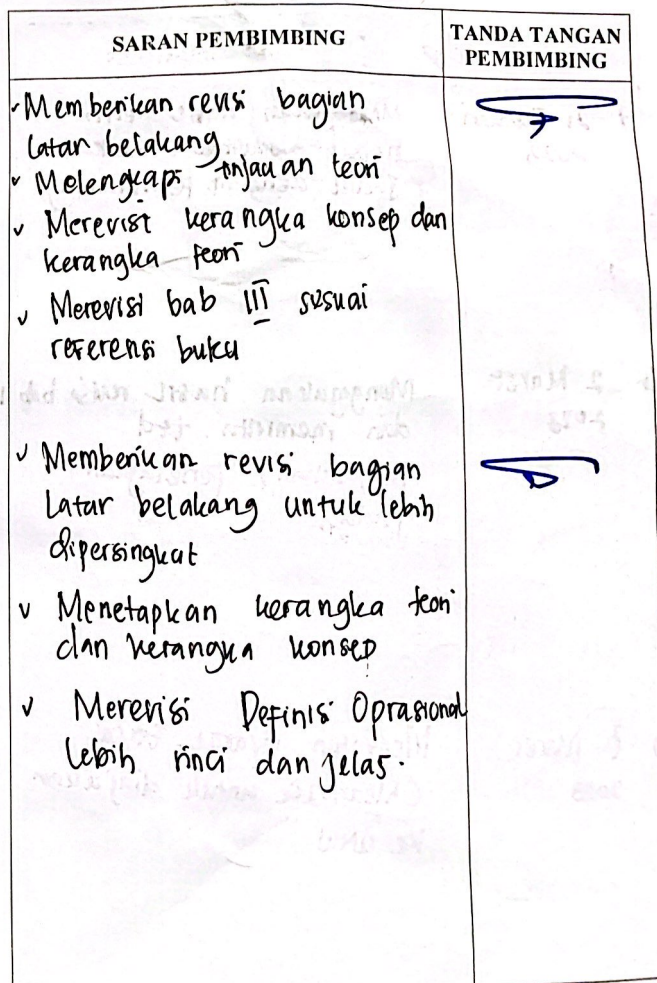 SARAN PEMBIMBING
TANDA TANGAN
PEMBIMBING
Memberikan revisi bagian
latar belakang
Melengkapi tinjauan teori
Merevisi kerangka konsep dan
kerangka teori
Merevisi bab III susuai
referensi buku
Memberikan revisi bagian
Latar belakang untuk lebih
dipersingkat
Menetapkan kerangka teori
dan kerangka konsep
Merevisi Definisi Oprasional
lebih rinci dan jelas.